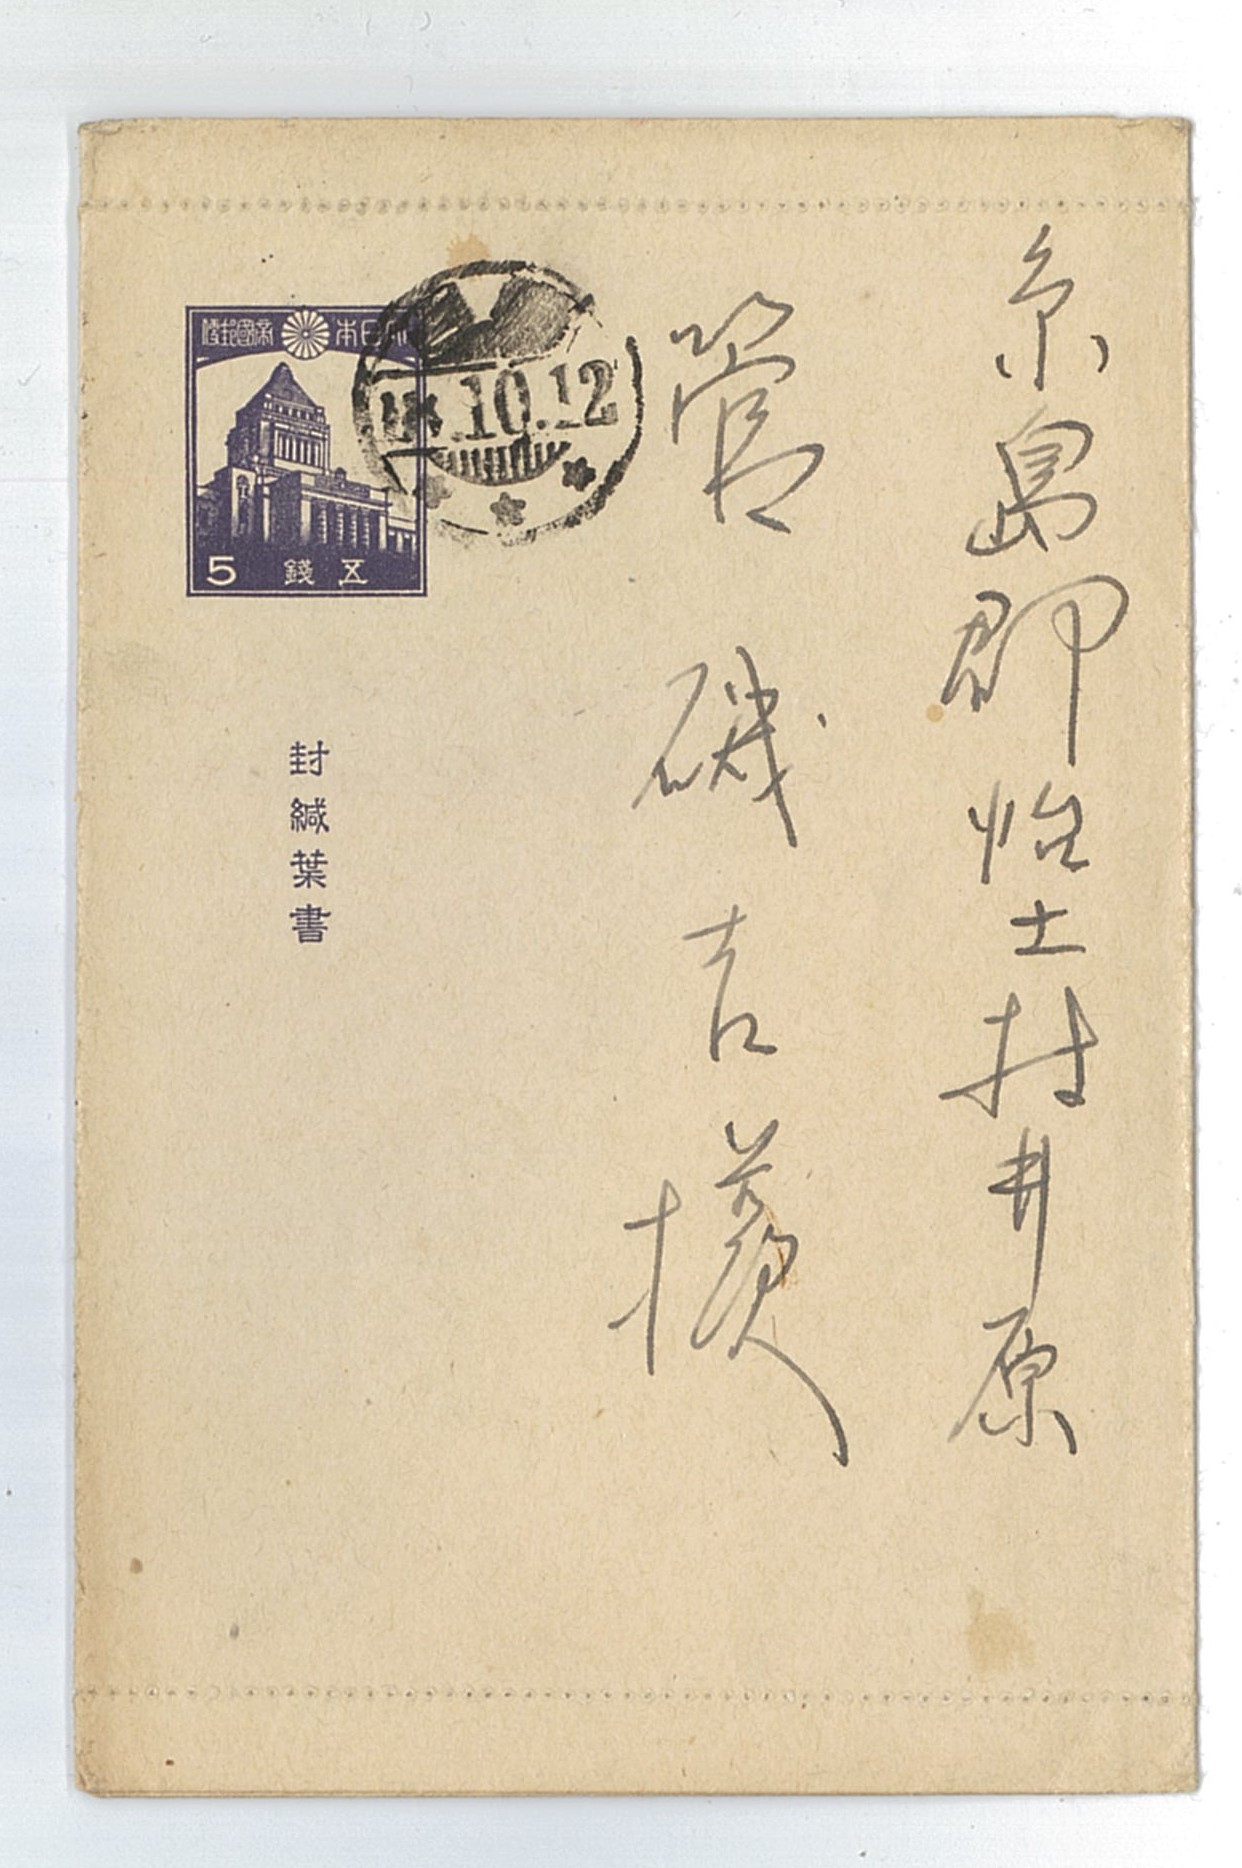 糸島郡怡土村井原
管磯吉様
大日本帝國郵便
.10.12
5 錢五
封緘葉書